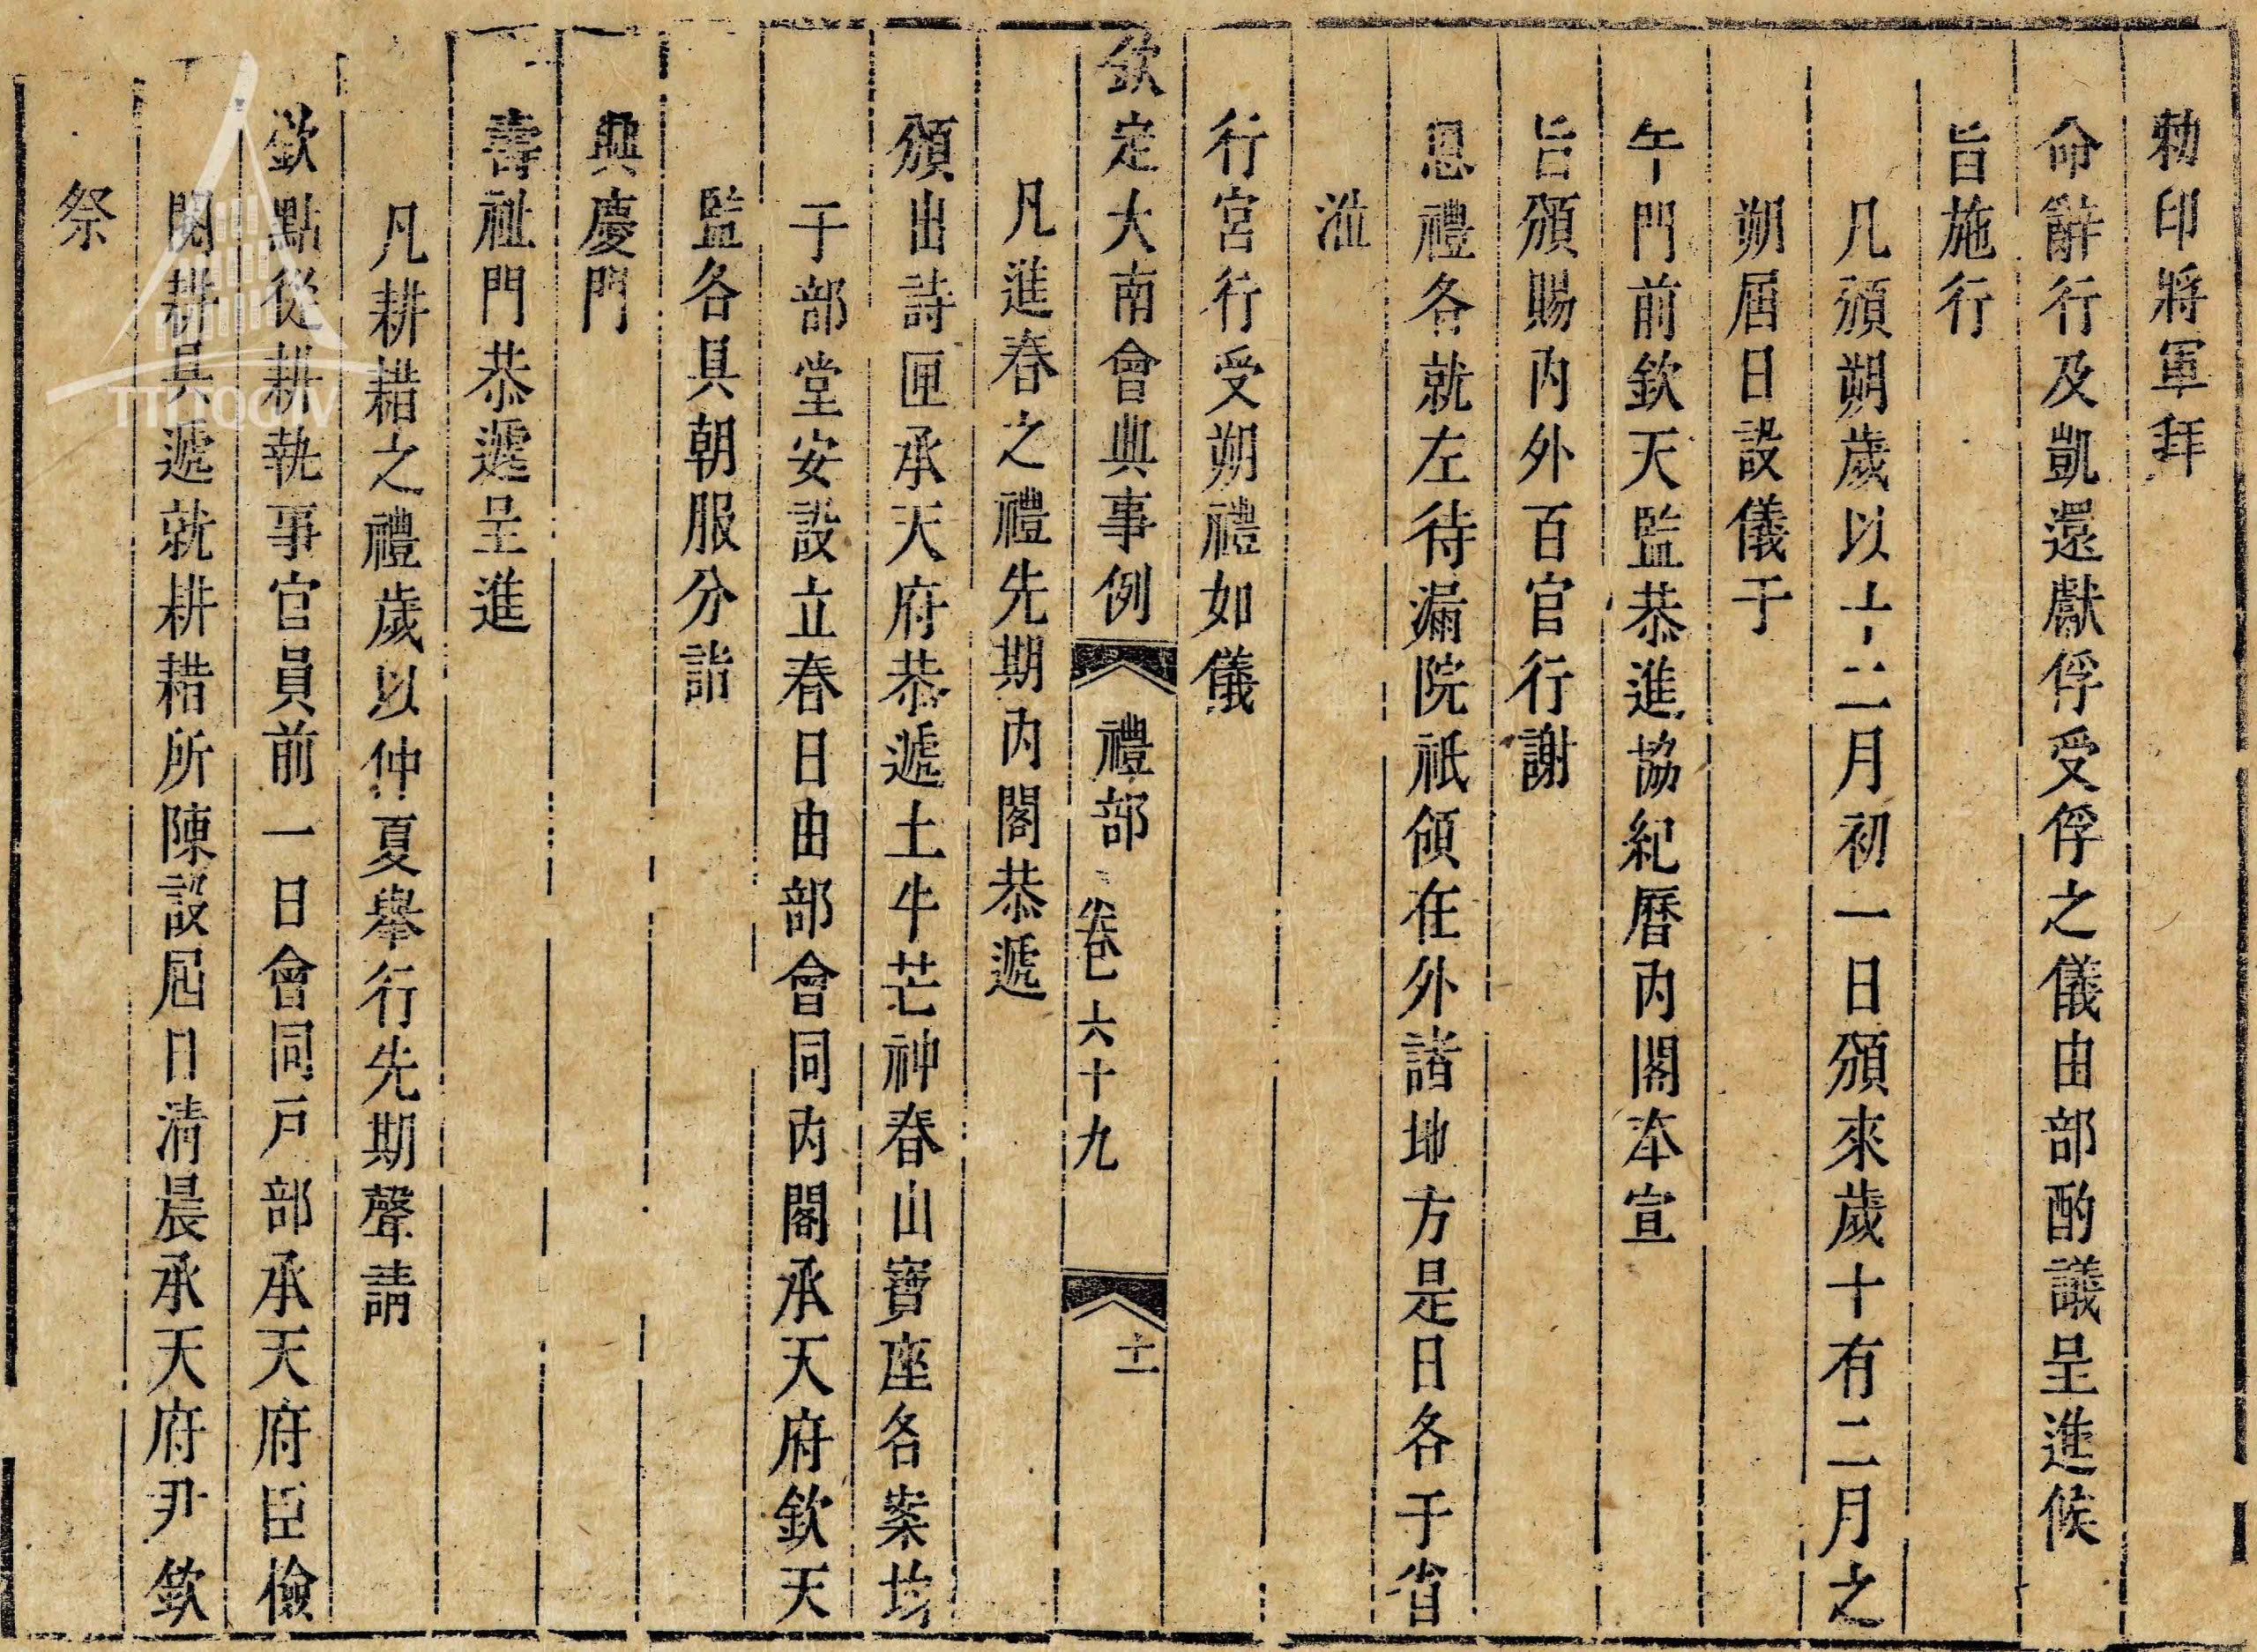 勅印將軍拜
命辭行及凱還獻俘受俘之儀由部酌議呈進候
旨施行
凡頒朔歲以十二月初一日頒來歲十有二月之
朔届日設儀于
午門前欽天監恭進協紀曆内閣本宣
旨頒賜内外百官行謝
恩禮各就左待漏院祇領在外諸地方是日各于省
涖
行宮行受朔禮如儀
欽定大南會典事例 禮部 卷六十九 十一
凡進春之禮先期内閣恭遞
頒出詩匣承天府恭遞土牛芒神春山寶座各案均
于部堂安設立春日由部會同内閣承天府欽天
監各具朝服分詣
興慶門
壽祉門恭遞呈進
凡耕耤之禮歲以仲夏舉行先期聲請
欽點從耕執事官員前一日會同戸部承天府臣檢
閱耕具遞就耕耤所陳設届日清晨承天府尹欽
祭
TTLTQGIV